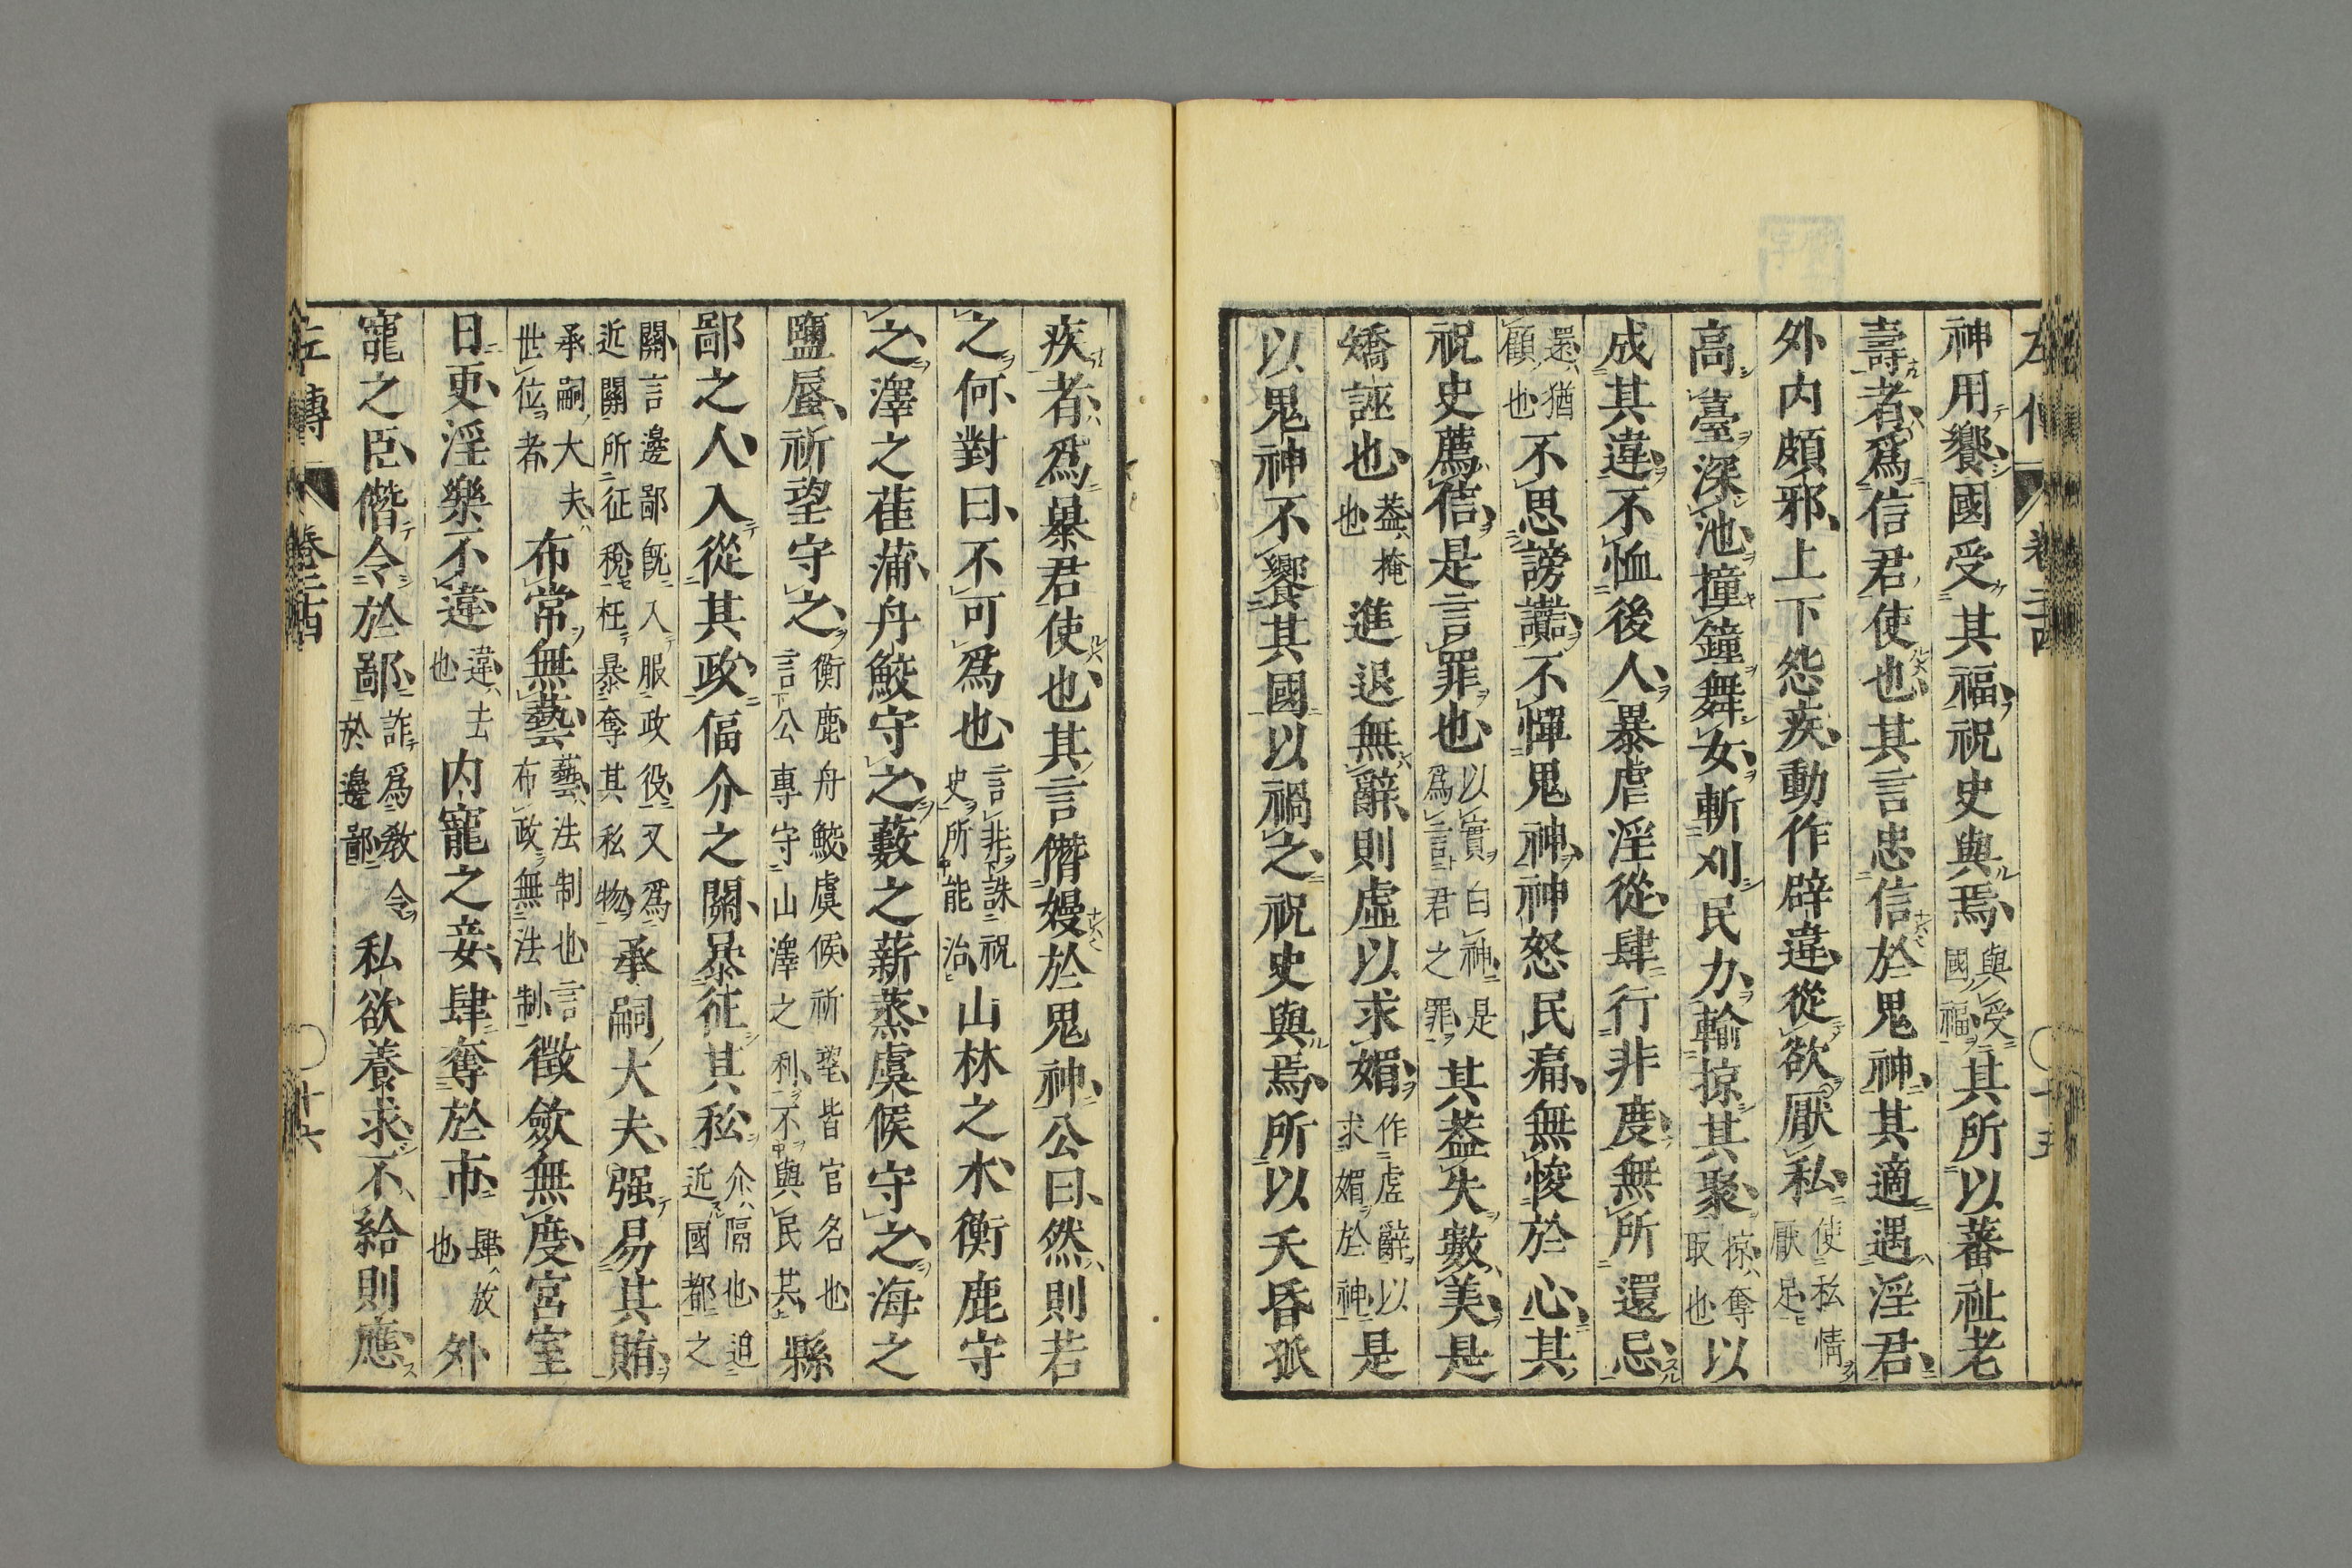 神用饗國受其福祝史與焉與受國福其所以蕃祉老
壽者爲信君使也其言忠信於鬼神其適遇淫君
外内頗邪上下怨疾動作辟違從欲厭私使私情厭足以
高臺深池撞鐘舞女斬刈民力輸掠其聚掠奪取也以
成其違不恤後人暴虐淫從肆行非度無所還忌
還猶顧也不思謗讟不憚鬼神神怒民痛無悛於心其
祝史薦信是言罪也以實白神是爲言君之罪其蓋失數美是
矯誣也蓋掩也進退無辭則虛以求媚作虛辭以求媚於神是
以鬼神不饗其國以禍之祝史與焉所以夭昏孤
疾者爲暴君使也其言僭嫚於鬼神公曰然則若
之何對曰不可爲也言非誅祝史所能治山林之木衡鹿守
之澤之萑蒲舟鮫守之藪之薪蒸虞候守之海之
鹽蜃祈望守之衡鹿舟鮫虞候祈望皆官名也言公專守山澤之利不與民共縣
鄙之人入從其政偪介之關暴征其私介隔也迫近國都之
關言邊鄙旣入服政役又爲近關所征稅枉暴奪其私物承嗣大夫强易其賄
承嗣大夫世位者布常無藝藝法制也言布政無法制徵斂無度宮室
日更淫樂不違違去也内寵之妾肆奪於市肆放也外
寵之臣僭令於鄙詐爲敎令於邊鄙私欲養求不給則應
左傳 卷二十四 廿六